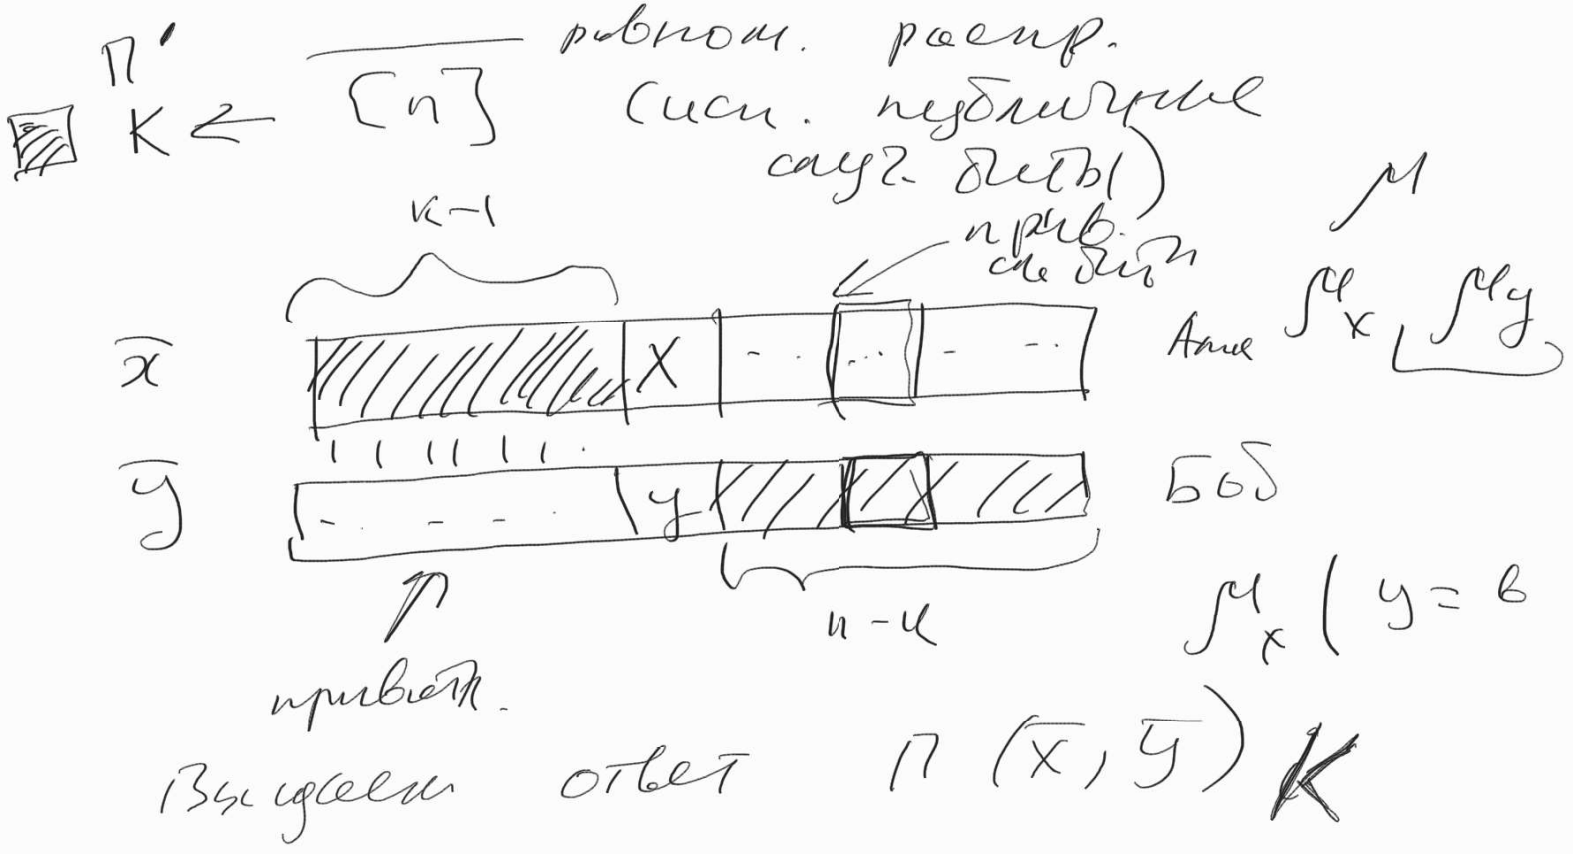 П'
равном. распр.
K ← [n] (исп. публичные
случ. биты)
k-1
прив.
сл. бит
μ
x̄ X - . . ... - - . Алис μx μy
ȳ - . - - . y Боб
n-k
μx | y = b
приватн.
Выдаем ответ П (x̄, ȳ) K